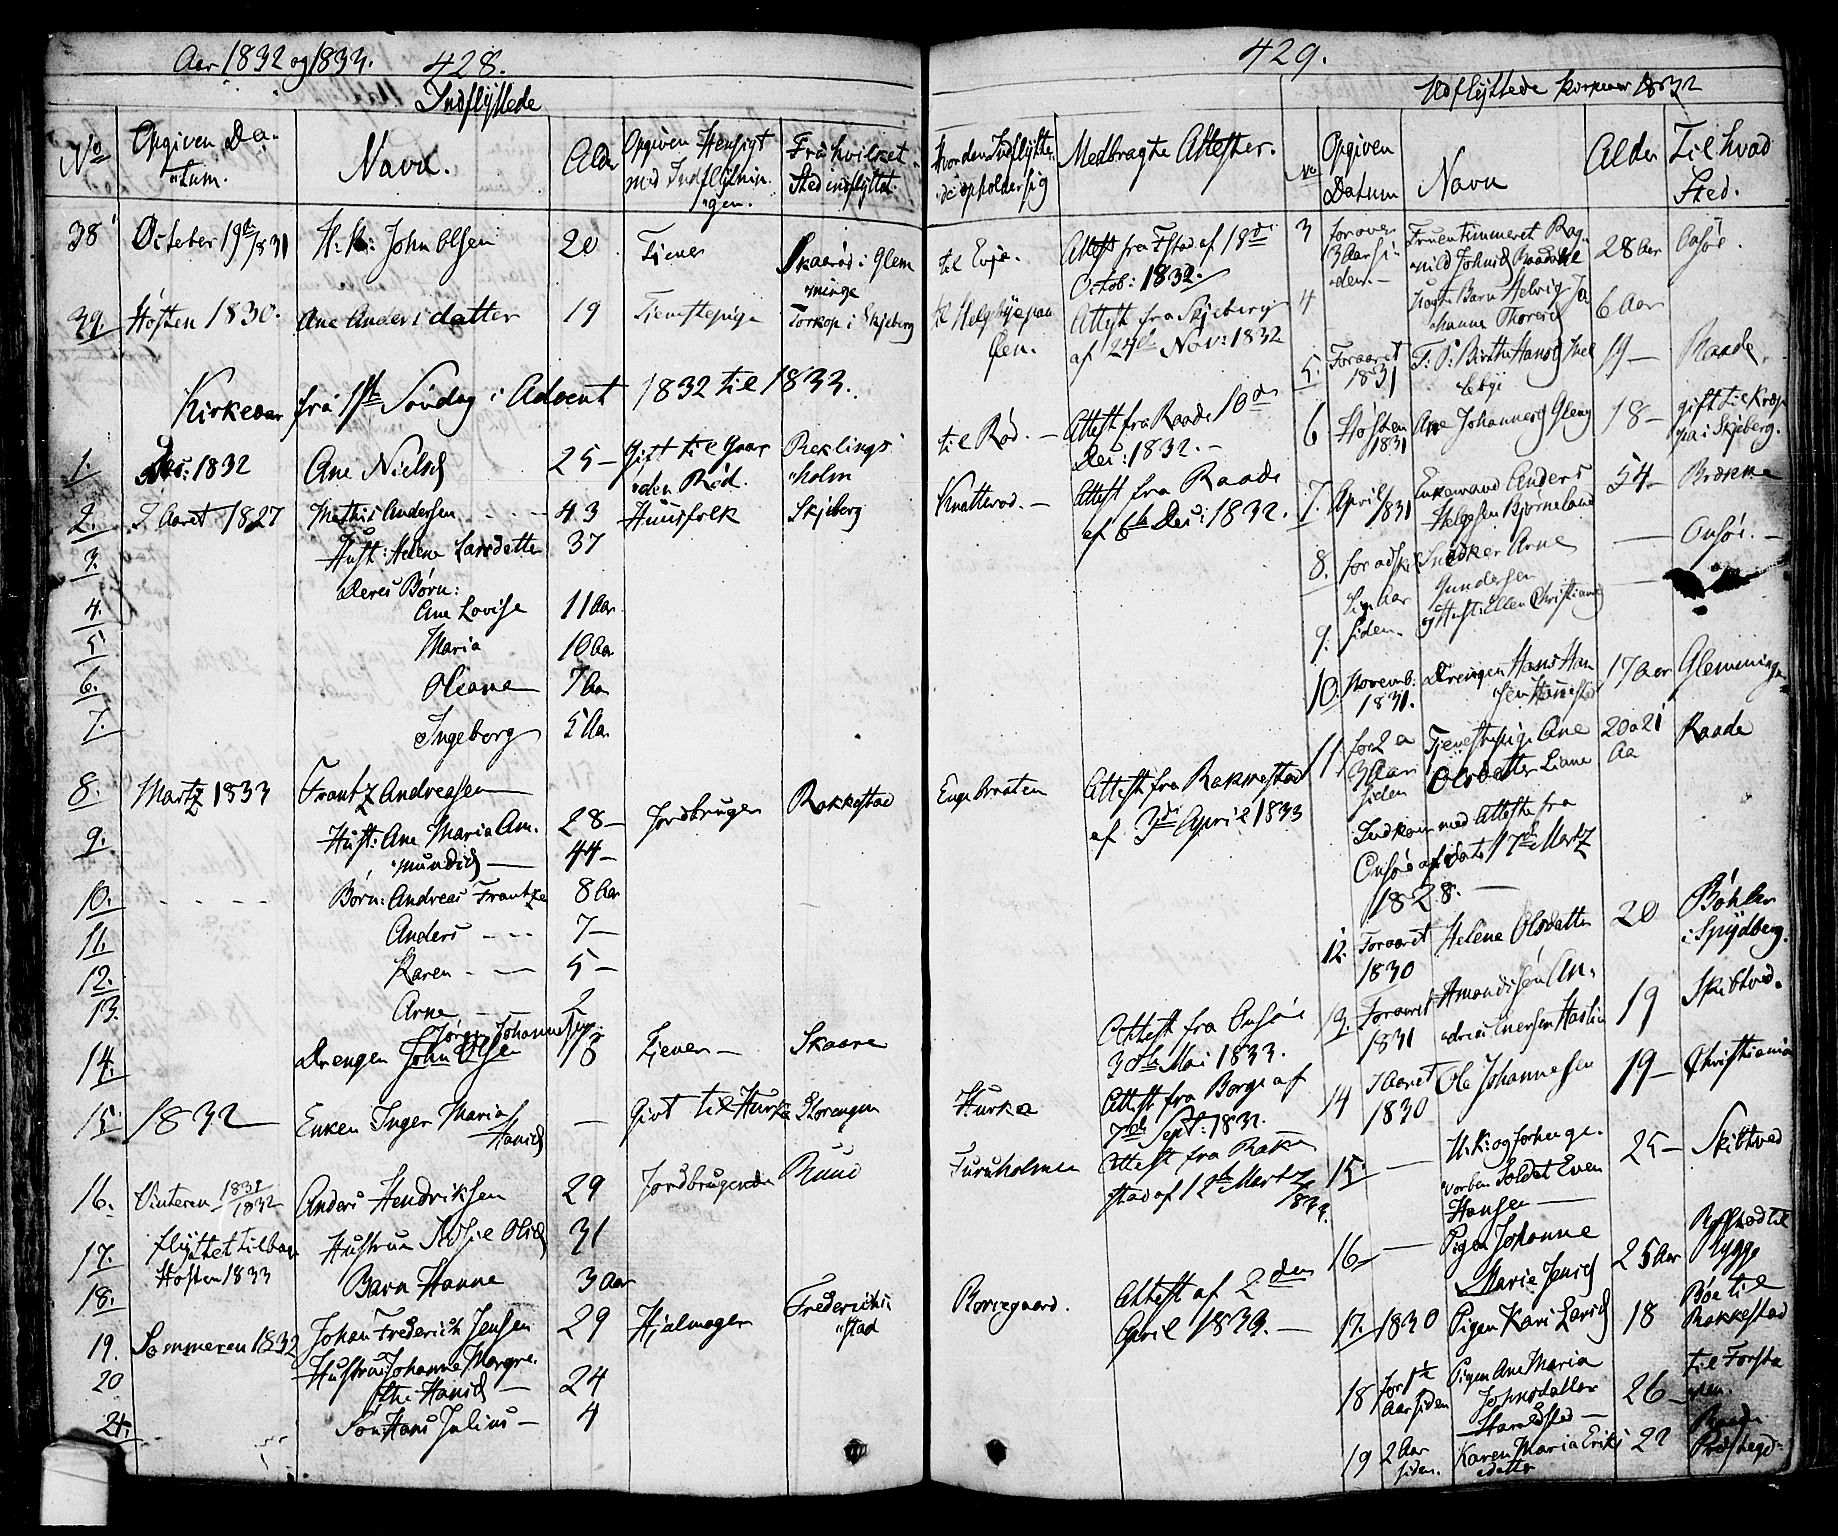 Aar 1832 og 1833. 428.
Indflyttede
No Opgiven Da- Navn. Alder Opgiven Hensigt Fra hvilket
tum. med Indflytnin- Sted indflyttet.
gen.
38 October 19de 1831 John Olsen 20 Tjener Skaarød i Glem
minge
39. Høsten 1830. Ane Andersdatter 19 Tjenestepige Torkop i Skjeberg
Kirkeaar fra 1ste Søndag i Advent 1832 til 1833.
1. Dec: 1832 Ane Nielsd 25 — Gift til Gaar Reklings
den Rød. holm
2. I Aaret 1827 Mathis Andersen 43 Huusfolk Skjeberg
3. Hust: Helene Larsdatter 37
Deres Børn:
4. Ane Lovise 11 Aar
5 Maria 10 Aar
6. Oleane 7 Aar
7. Ingeborg 5 Aar
8. Martz 1833 Frantz Andreasen 28 — Jordbruger Rakkestad
9. Hust: Ane Maria Am-
mundsd — 44 —
10. Børn: Andreas Frantze 8 Aar
11. Anders 7 —
12. Karen 5 —
13. Arne 2
Jørgen Johannesen
14. Drengen John Olsen 18 Tjener — Skaare
15 1832 — Enken Inger Maria — Givt til Hurka Storengen
Hansd
16. Vinteren 1831/1832 Anders Hendriksen 29 Jordbrugende Ruud
17. flyttet tilbage Hustrue Olsd 31
Høsten 1833
18. Barn Hanne 3 Aar
19. Sommeren 1832 Johan Frederich Jensen 29 Hjulmager Frederichs-
stad
20 Hustrue Johanne Margre-
the Hansd — 24
21. Søn Hans Julius — 4
429.
Udflyttede Kirkeaar 1832
Hvor den Indflytte- Medbragte Attester. No Opgiven Navn Alder Til hvad
de opholder sig Datum Sted.
til Evje. Attest fra Fstad af 18de 3 for over Fruentimmeret Rag- 28 Aar Onsøe.
Octob: 1832. 3 Aar si-
den.
Attest fra Skjeberg 4 Barn Helvig Jo 6 Aar
af 24de Nov: 1832 hanne Thoresd
5. Foraaret Birthe Hansd 19 — Raade.
1831
til Rød. — Attest fra Raade 10de 6 Høsten Ane Johannesd Gleng 18 — gift til
Dec: 1832. — 1831 i Skjeberg.
Knatterød — Attest fra Raade 7. April Enkemand Anders 54 —
af 6te Dec: 1832. 1831 Helgesen Bjørneland
8. for adskil Snedker Arne — Onsøe. —
lige Aar Gundersen
9. siden. og Hust: Ellen Christiansd —
10. Novemb: Drengen Hans Han 17 Aar Glemminge
1831. sen
11 for 2 a Tjenestepige Ane 20 a 21 Raade
3 Aar Olsdatter Aar
siden
Engebraaten Attest fra Rakkestad
af 3die April 1833
Indkom med Attest fra
Onsøe af dato 17de Martz
1828. —
12. Foraaret Helene Olsdatter 20 Bøhler
1830 i Spydberg.
Attest fra Onsøe 13. Foraaret An- 19 Skibtved.
30te Mai 1833. 1831
Hurka Attest fra Borge af 14 I Aaret Ole Johannesen 19 — Christiania
7de Sept: 1832. 1830
Furuholmen Attest fra Rakke 15. — og forhenge- 25 — Skibtved
stad af 12te Martz vorben Soldat Even
1833. Hansen —
16 — Pigen Johanne 25 Aar til
Marie Jensd Rygge
Attest af 2den 17. 1830 Pigen Kari Larsd 18 Bøe til
April 1833. — Rakkestad
18 for 1te Pigen Ane Maria 26 — til
Aar siden Johnsdatter
19 2 Aar Karen Maria Eriks 22 Raade
siden. datter Præstegd